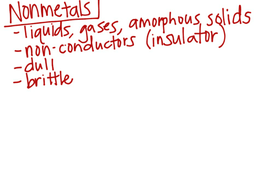 Nonmetals
- liquids, gases, amorphous solids
- non-conductors (insulator)
- dull
- brittle